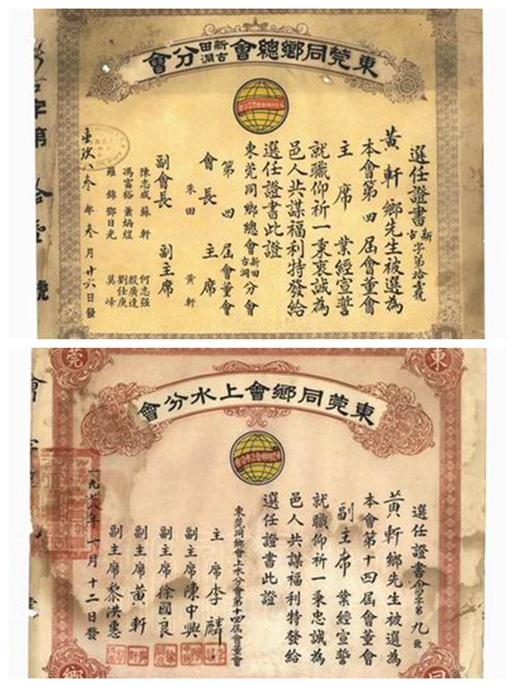 東莞同鄉總會新田古洞分會
選任證書新古字第拾壹號
黃軒鄉先生被選為
本會第四屆會董會
主席 業經宣誓
就職仰祈一秉衷誠為
邑人共謀福利特發給
選任證書此證
東莞同鄉總會新田古洞分會
第四屆會董會
會長 朱田 主席 黃軒
副會長 副主席
陳志成 蘇軒 何志强
馮富裕 葉炳煜 殷廣達 劉仕庚
羅錦 鄧日光 莫峰
壹玖八叁年叁月廿六日發
字第拾壹號
東莞
東莞同鄉會上水分會
選任證書會字第九號
黃軒鄉先生被選為
本會第十四屆會董會
副主席 業經宣誓
就職仰祈一秉忠誠為
邑人共謀福利特發給
選任證書此證
東莞同鄉會上水分會第十四屆會董會
主席李麟
副主席陳中興
副主席徐國良
副主席黃軒
副主席黎洪惠
一九七八年一月十二日發
會字
同鄉